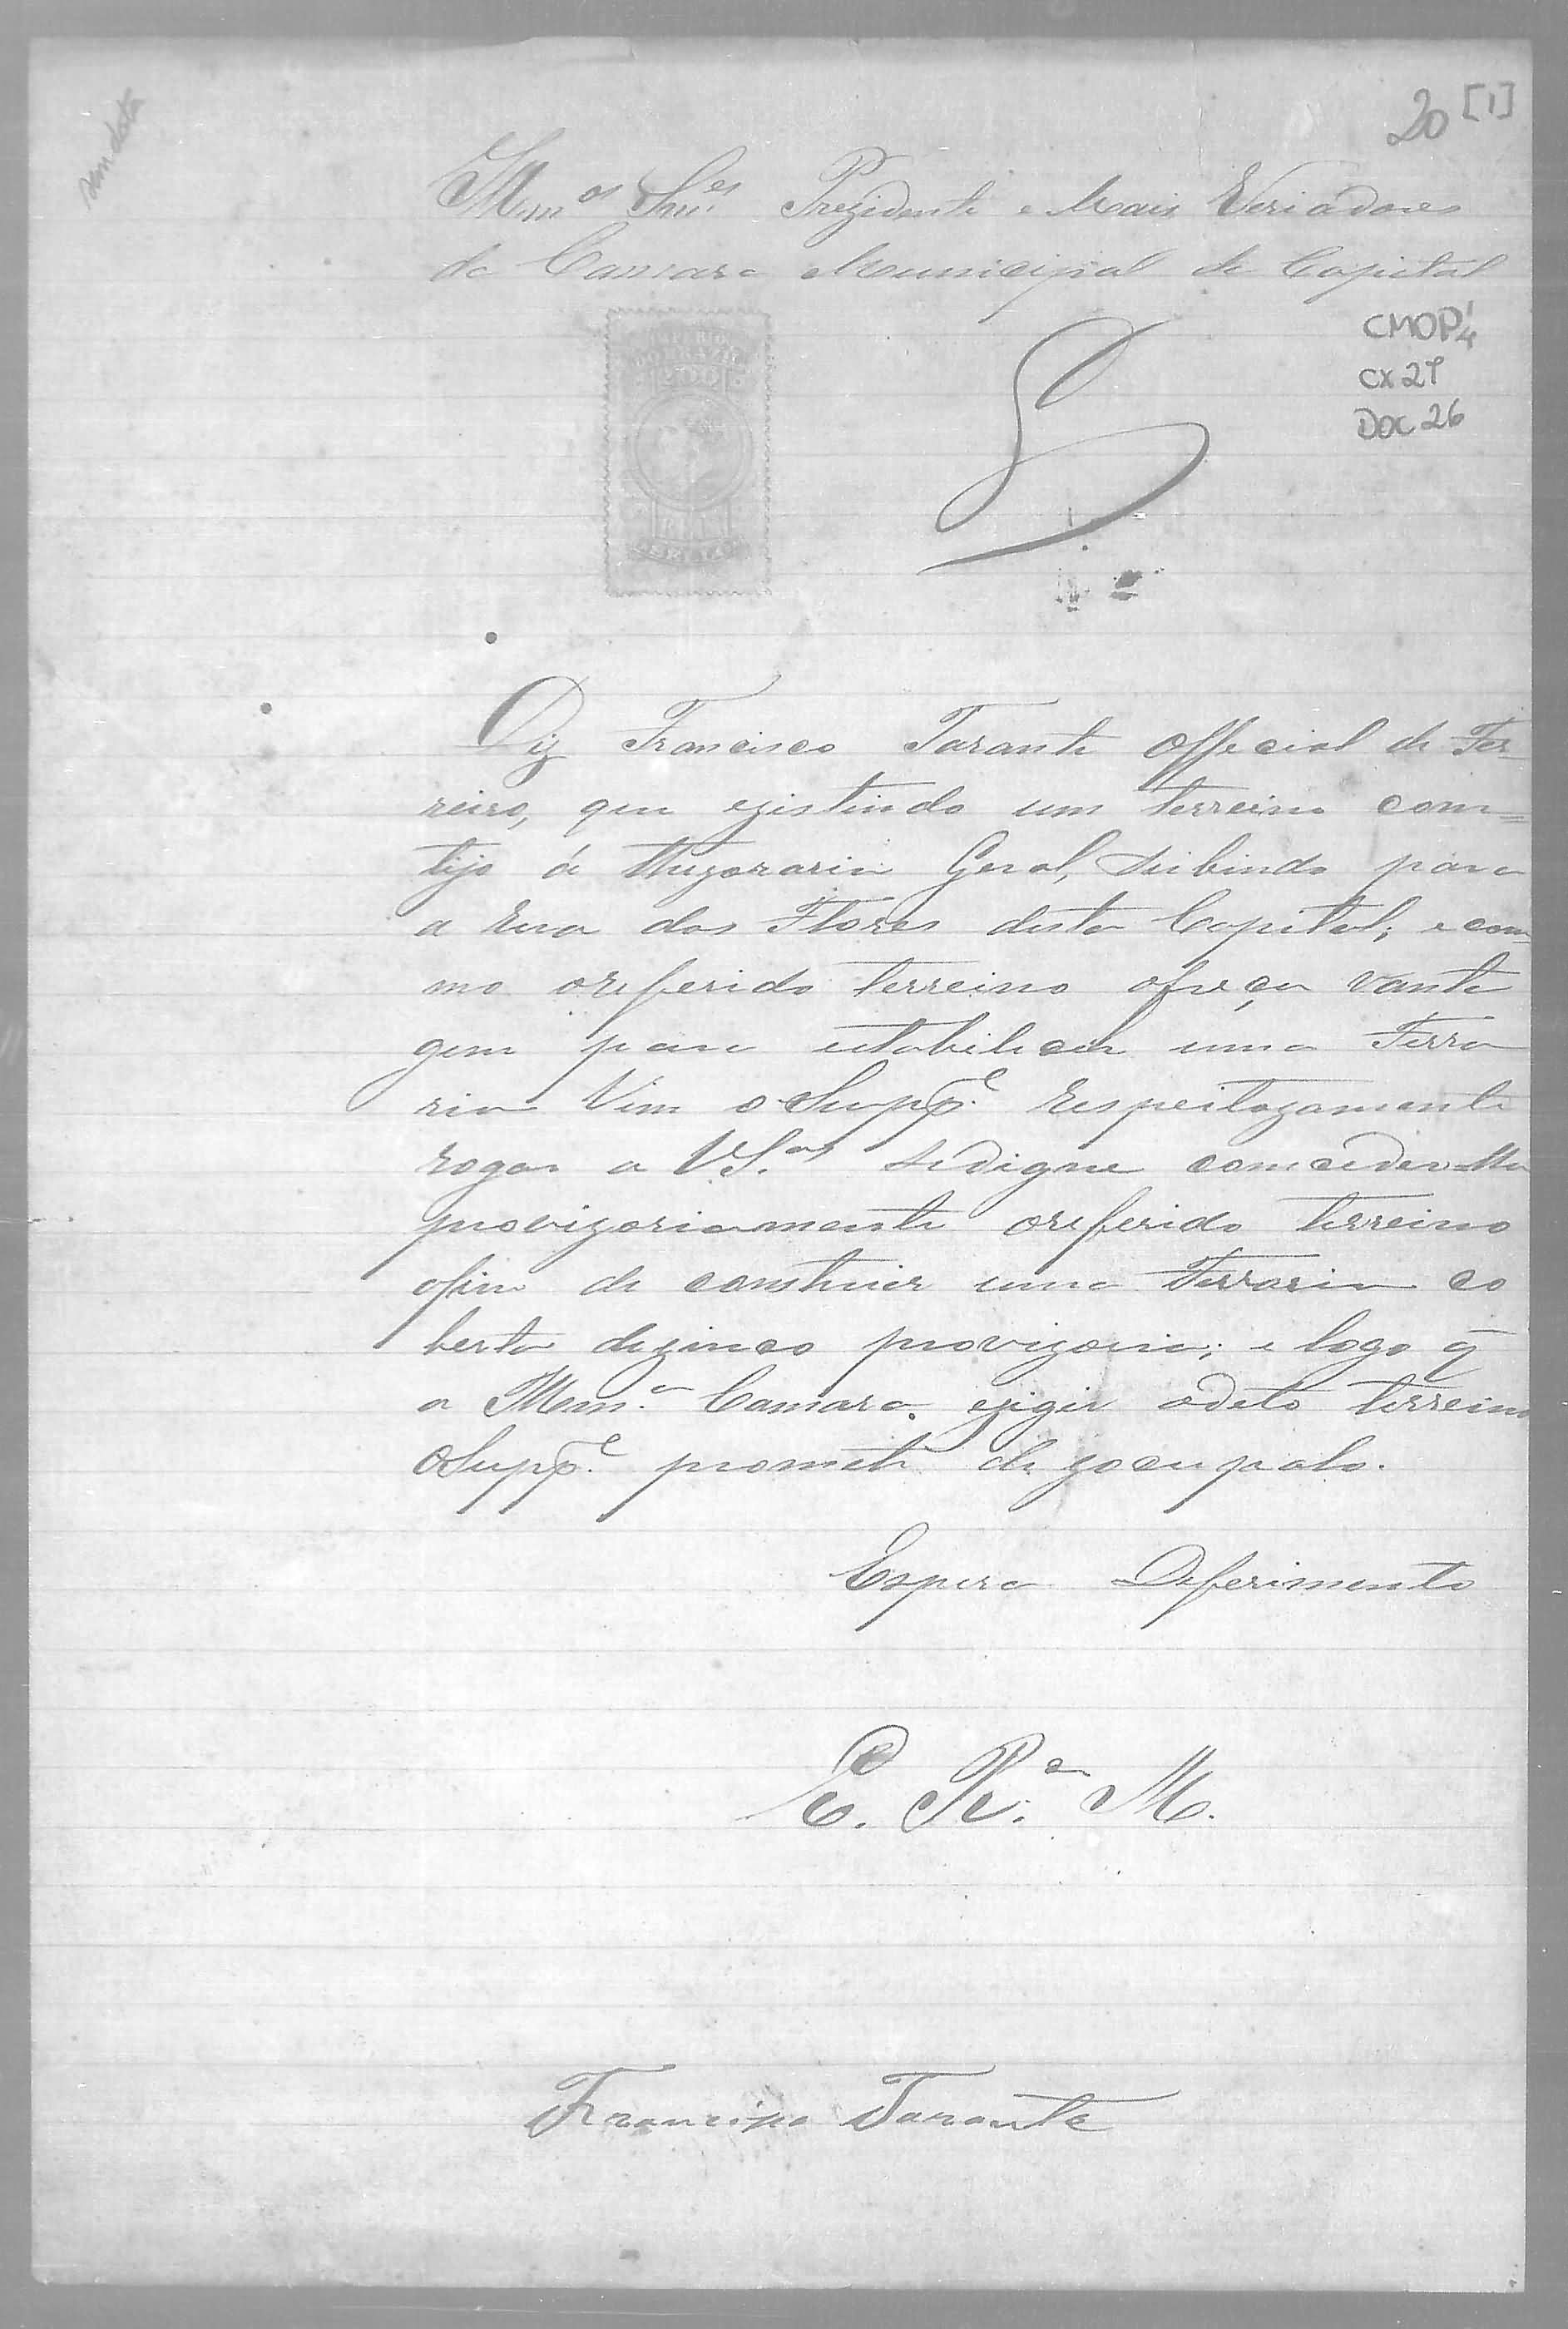 20 [1]
sem data
Illmos Snres Prezidente e Mais Veriadores
da Camara Municipal da Capital
CMOP 1/4
CX 29
DOC 26
200
SELLO
Diz Francisco Tarante Official de Fer-
reiro, que ezistindo um terreino com=
tijo á Thezoraria Geral, Subindo para
a Rua das Flores desta Capital; e com
mo oreferido terreino ofreça vante
gem para estabelicer uma Ferra
ria Vem o Suppe. Respeitozamente
rogar a VS.as sedigne comceder-lhe
provizoriamente oreferido terreino
afim de construir uma Ferraria co
berta dezinco provizoria; e logo q̃
a Illma. Camara ezigir odito terreino
OSuppe. promete dezocupalo.
Espera Deferimento
E. R. M.
Francisco Tarante